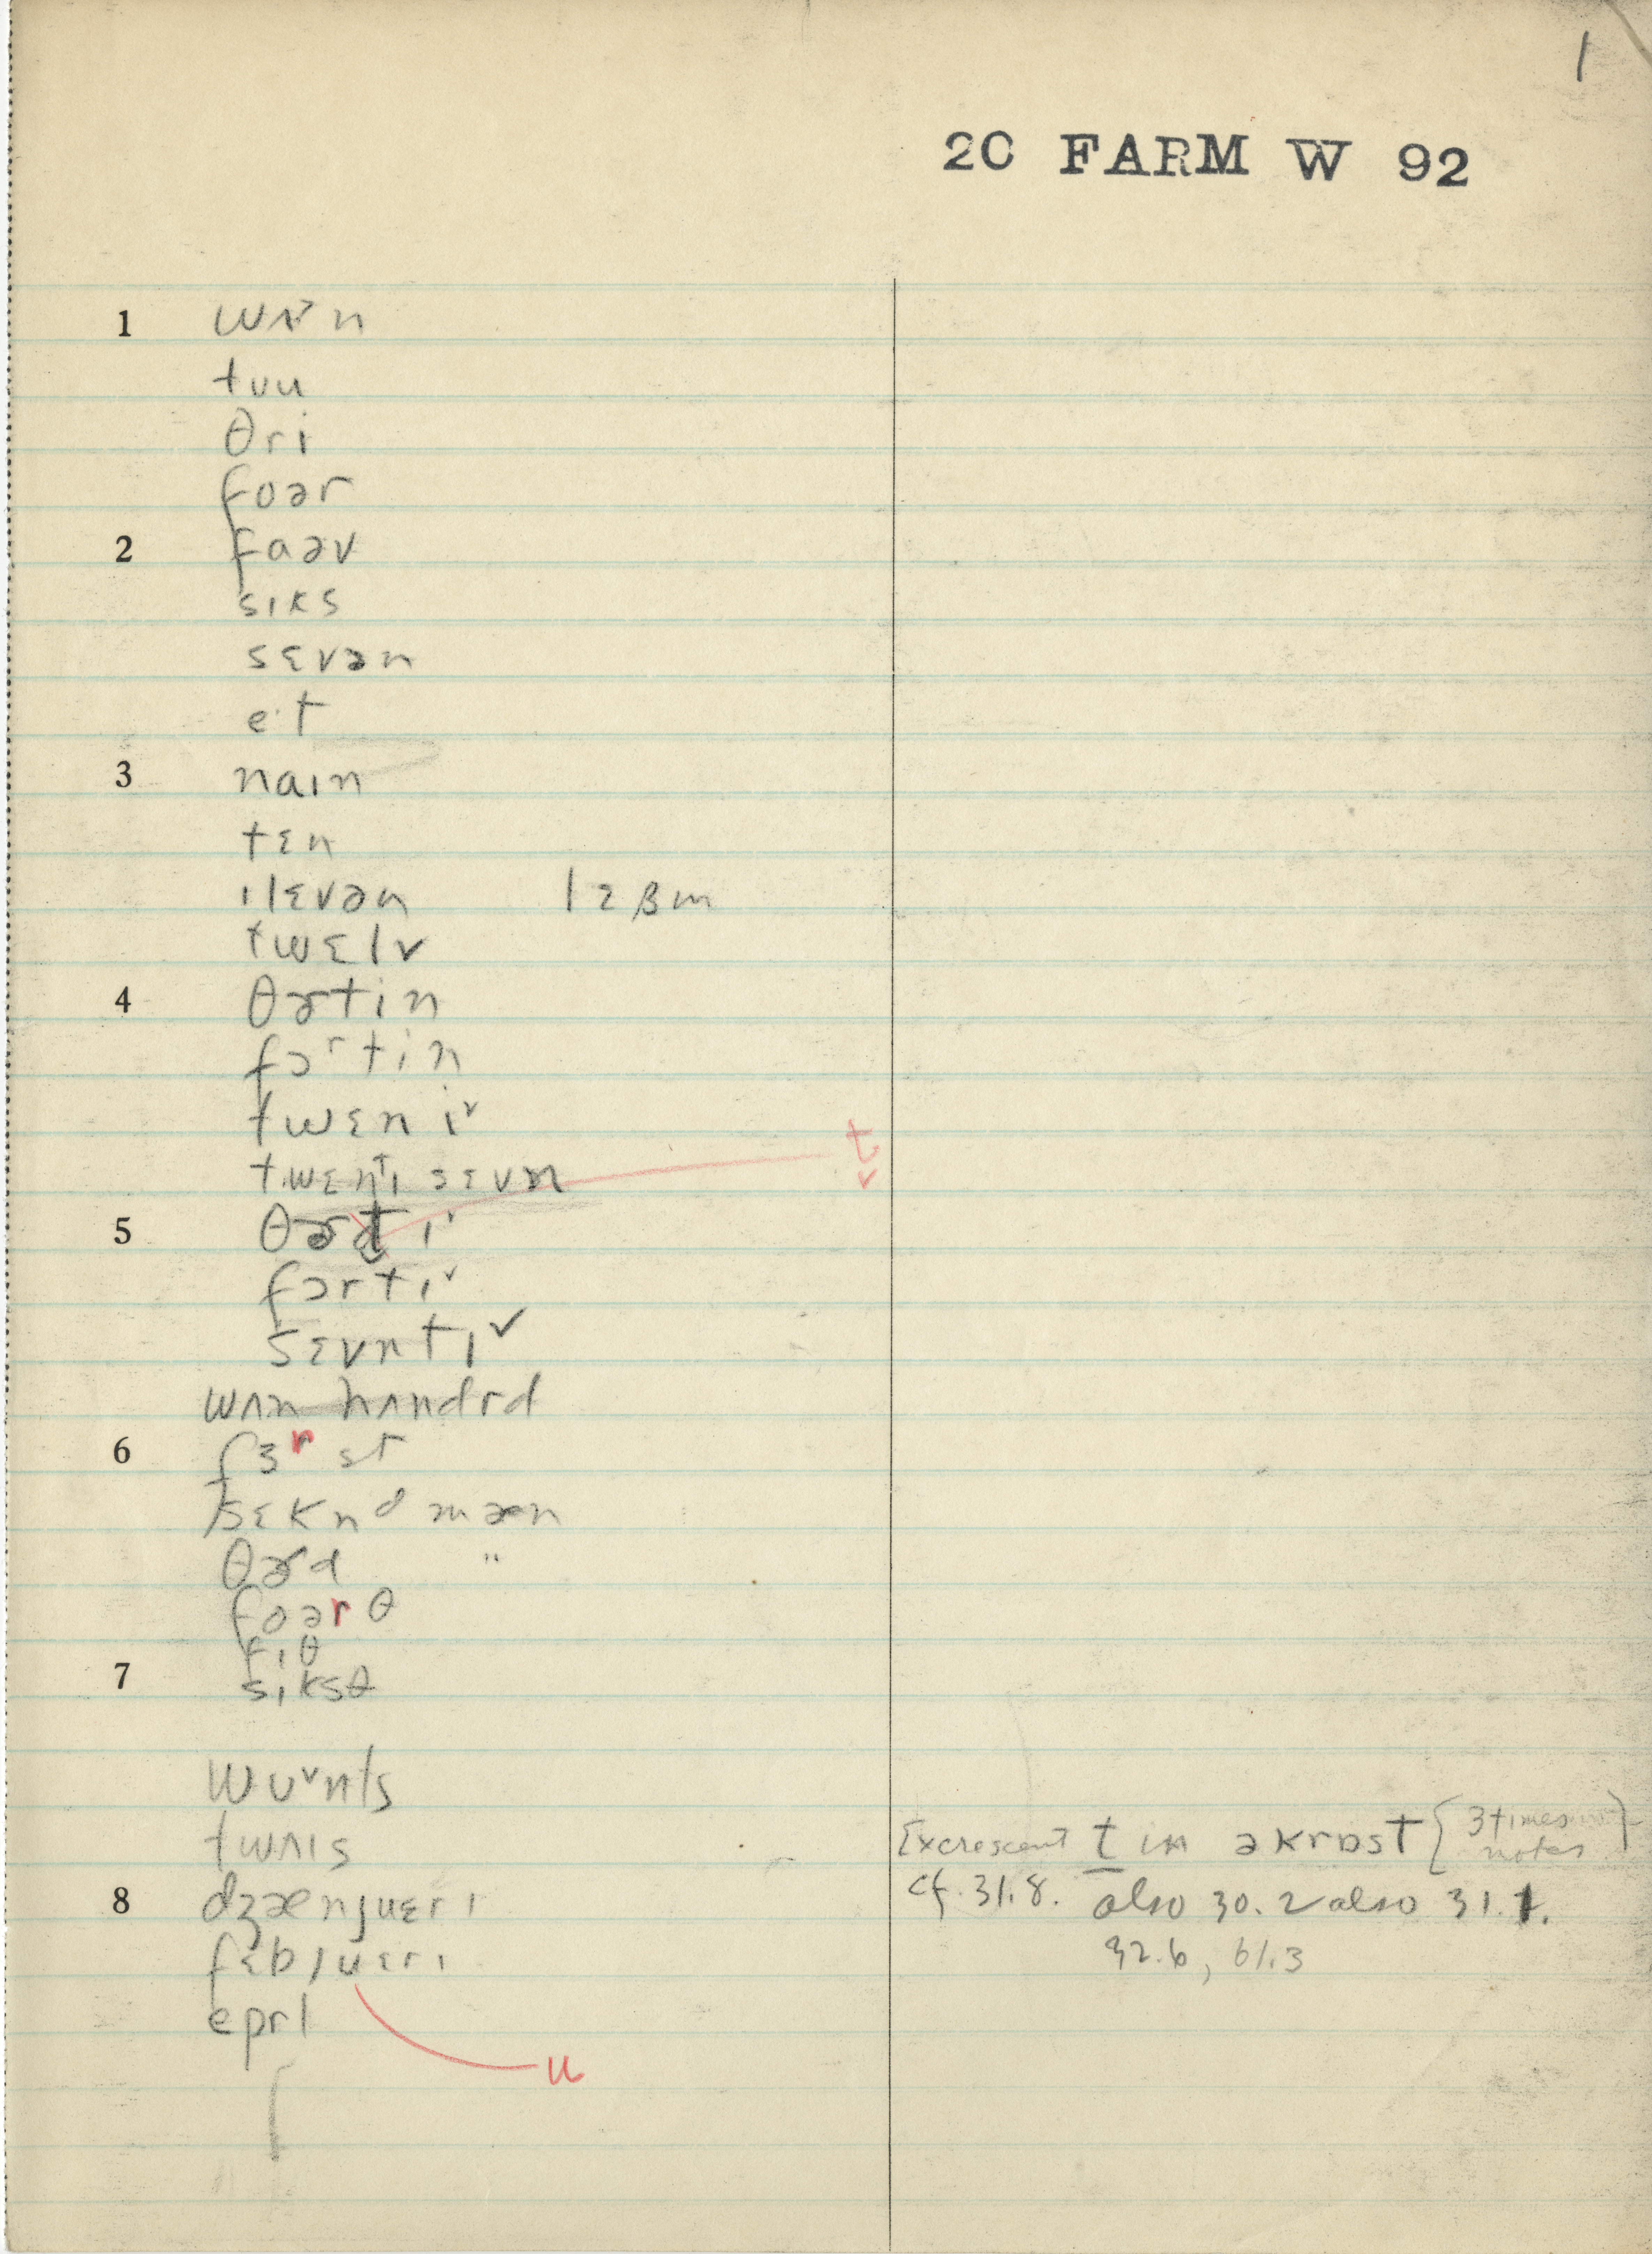 1
20 FARM W 92
1 wʌ˅n
tʊu
θri
foər
2 faəv
sɪks
sɛvən
e·t
3 naɪn
tɛn
ɪlɛvən lɛβm
twɛlv
4 θɚtin
fɔʳtin
twɛni˅
twɛnᵗɪ sɛvn
t̬
5 θɚt̬ɪ˅
fɔrtɪ˅
sɛvntɪ˅
wʌn hʌndrd
6 fɜʳst
sɛknᵈ mæn
θɚd "
foərθ
fɪθ
7 sɪksθ
wʊ˅nts
twʌɪs
Excrescent t in əkrɒst {3 times in notes}
8 dʒænjuɛrɪ
cf. 31.8. also 30.2 also 31.1.
fɛbjuɛrɪ
32.6, 61.3
eprl
u